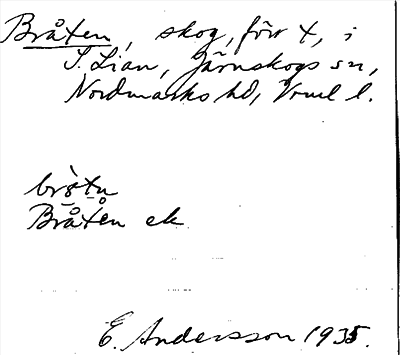 Bråten, skog, förr t, i
S. Lian, Järnskogs sn,
Nordmarks hd, Vrml l.
bròtn
Bråten ek
E. Andersson 1935.